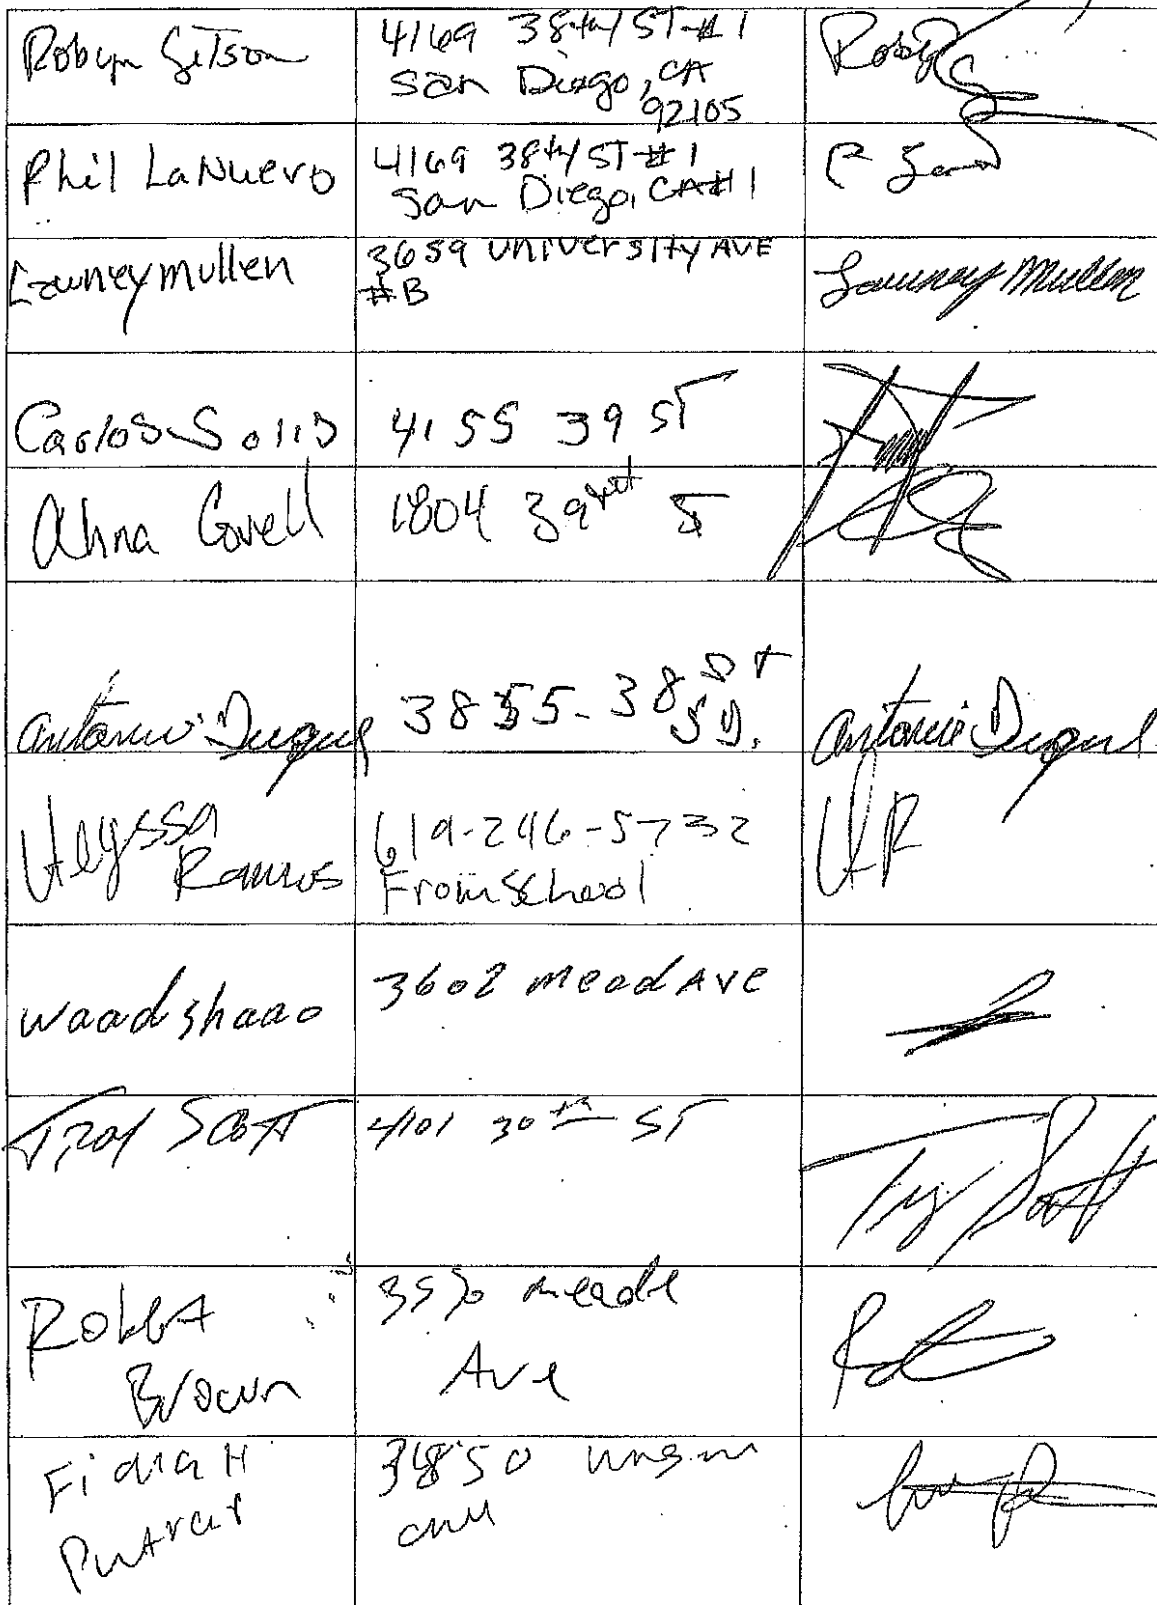 Robyn
4169 38th ST #1
San Diego, CA
92105
Roby
Phil LaNuevo
4169 38th ST #1
San Diego, CA #1
Lawney mullen
3659 University AVE
#B
Lawney Mullen
Carlos Solis
4155 39 ST
Ahna Covell
1804 39
Antonio Duque
3855-38
Antonio Duque
Alyssa
Ramos
619-246-5732
From School
AR
waad shaao
3602 mead AVE
Troy Scott
4101 30th ST
Troy Scott
Robert
Brown
meade
Ave
3850